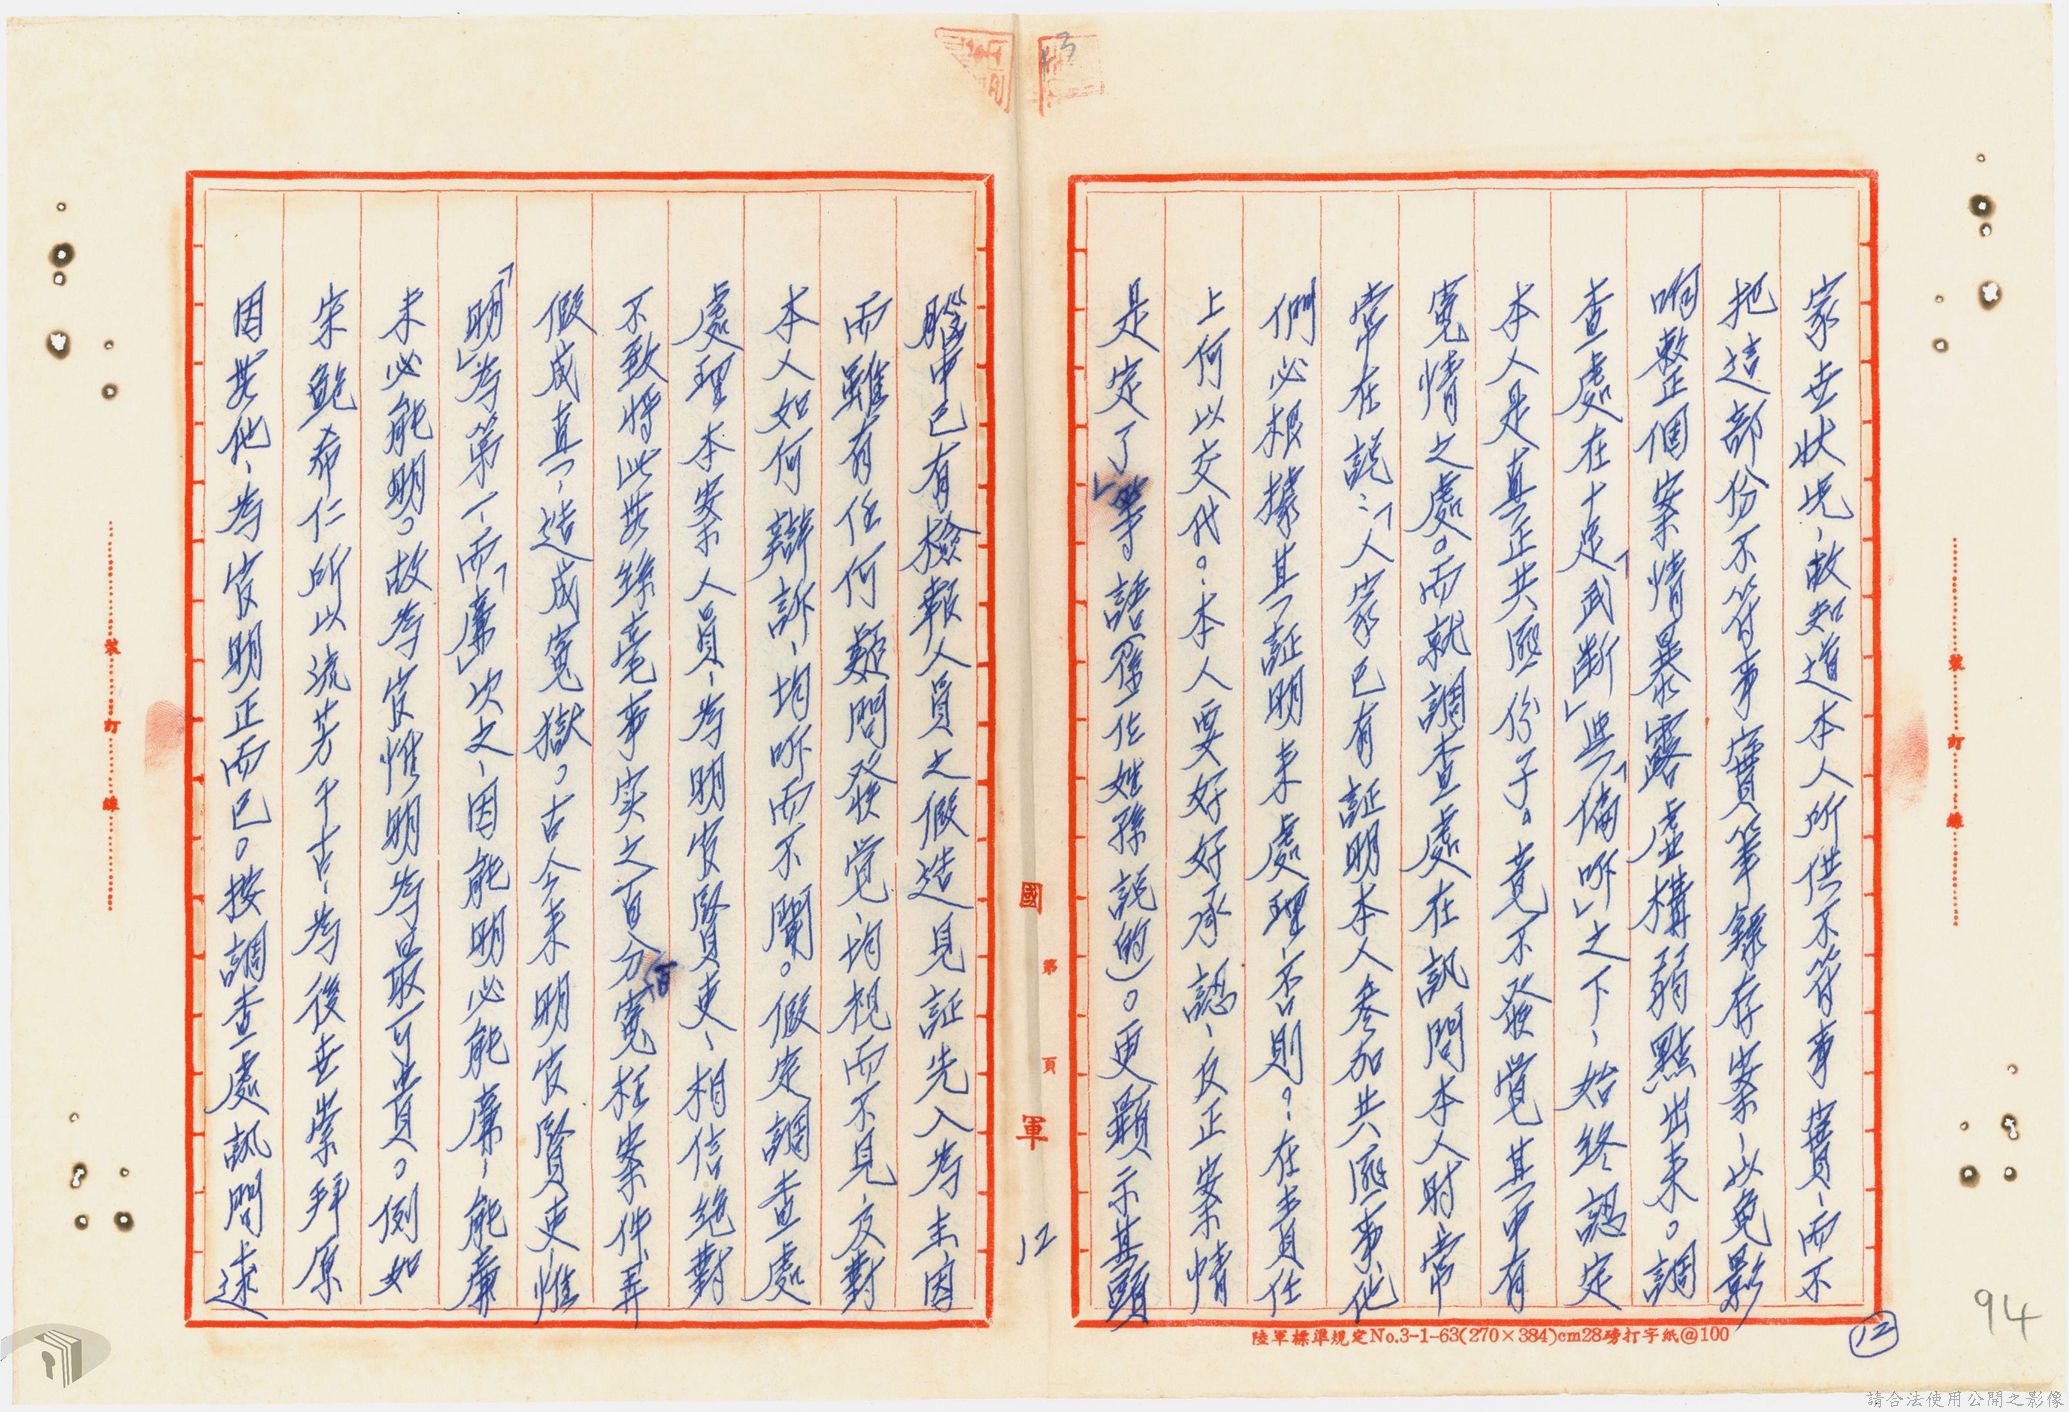 家世狀況，故知道本人所供不符事實，而不
把這部份不符事實筆錄存案，以免影
响整個案情暴露虛構弱點出來。調
查處在十足「武斷」與「偏听」之下，始終認定
本人是真正共匪份子。竟不發覺其中有
寃情之處。而就調查處在訊問本人時，常
常在說：「人家已有証明本人參加共匪事，他
們必根據其証明來處理，否則。在責任
上何以交代。本人要好好承認，反正案情
是定了」等語（係一位姓孫說的）。更顯示其頭
腦中已有檢報人員之假造見証先入為主因
而雖有任何疑問發覺，均視而不見，反對
本人如何辯訴，均听而不聞。假定調查處
處理本案人員，為明官賢吏，相信絕對
不致將此無絲毫事实之百分百寃枉案件弄
假成真，造成寃獄。古今來明官賢吏惟
「明」為第一，而「廉」次之，因能明必能廉，能廉
未必能明。故為官惟明為最可貴。例如
宋鮑希仁所以流芳千古，為後世崇拜原
因無他，為官明正而已。按調查處訊問迷
國軍
第 頁
12
陸軍標準規定No.3-1-63(270×384)cm28磅打字紙@100
12
94
裝 訂 線
裝 訂 線
請合法使用公開之影像